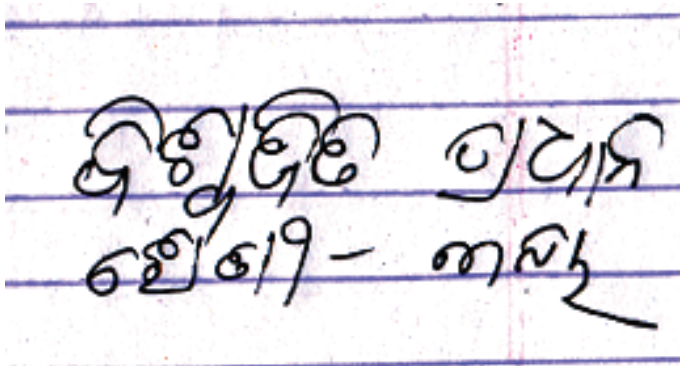 ବିଶ୍ୱଜିତ ପ୍ରଧାନ
ଶ୍ରେଣୀ -